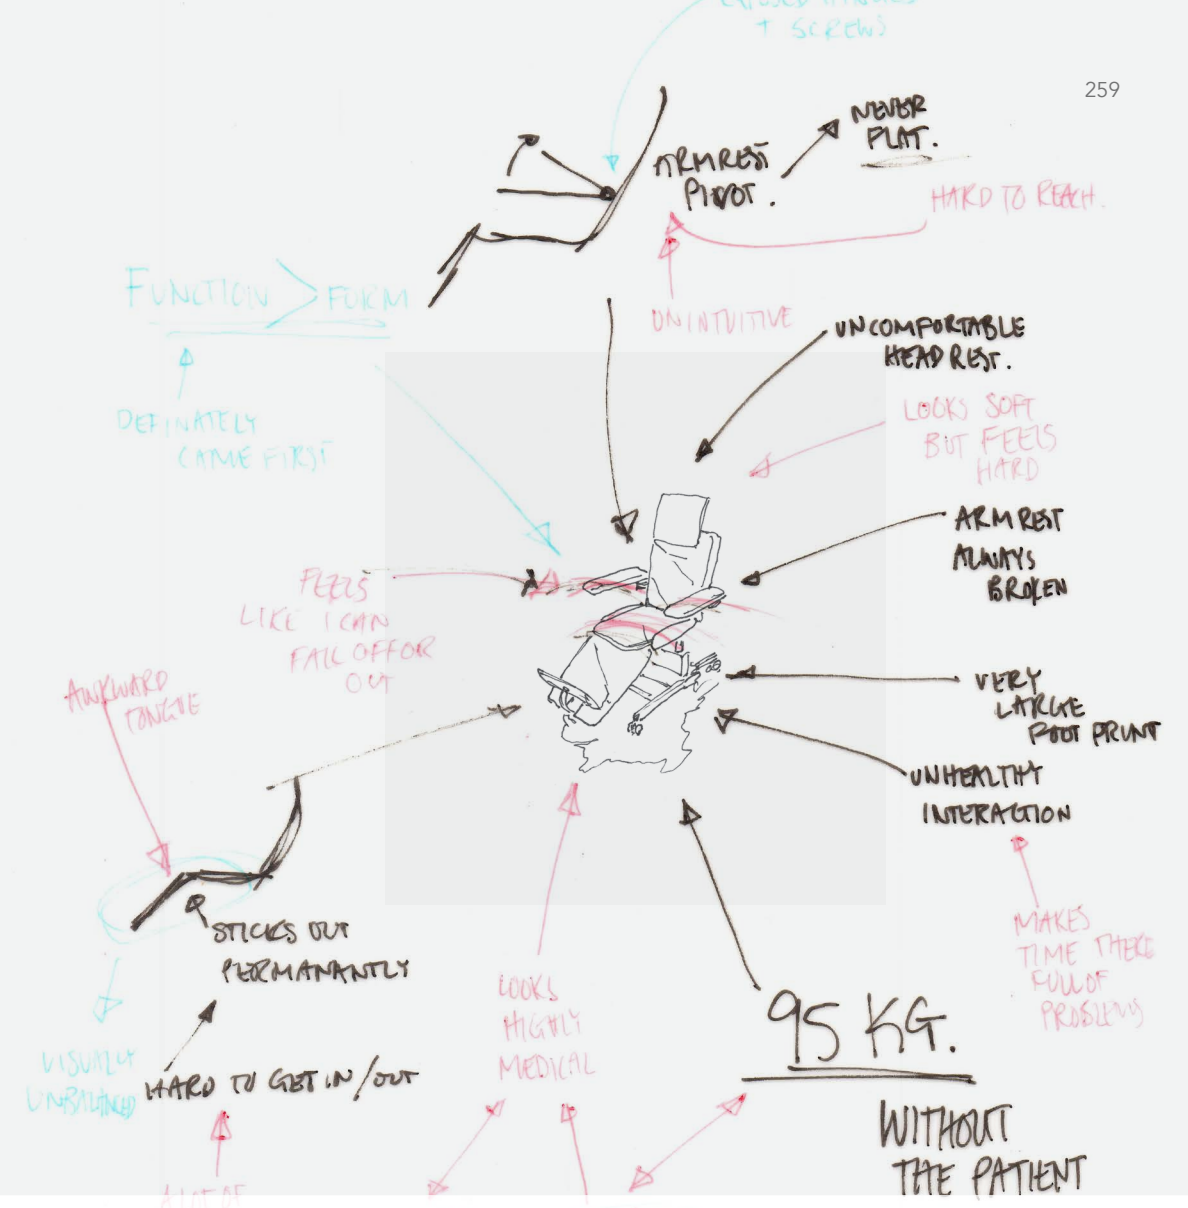 + SCREWS
259
NEVER
FLAT.
ARMREST
PIVOT.
HARD TO REACH.
UNINTUITIVE
FUNCTION > FORM
DEFINATELY
CAME FIRST
UNCOMFORTABLE
HEAD REST.
LOOKS SOFT
BUT FEELS
HARD
ARMREST
ALWAYS
BROKEN
FEELS
LIKE I CAN
FALL OFF OR
OUT
AWKWARD
TONGUE
VERY
LARGE
FOOT PRINT
UNHEALTHY
INTERACTION
MAKES
TIME THERE
FULL OF
PROBLEMS
STICKS OUT
PERMANANTLY
HARD TO GET IN/OUT
VISUALLY
UNBALANCED
LOOKS
HIGHLY
MEDICAL
95 KG.
WITHOUT
THE PATIENT
A LOT OF